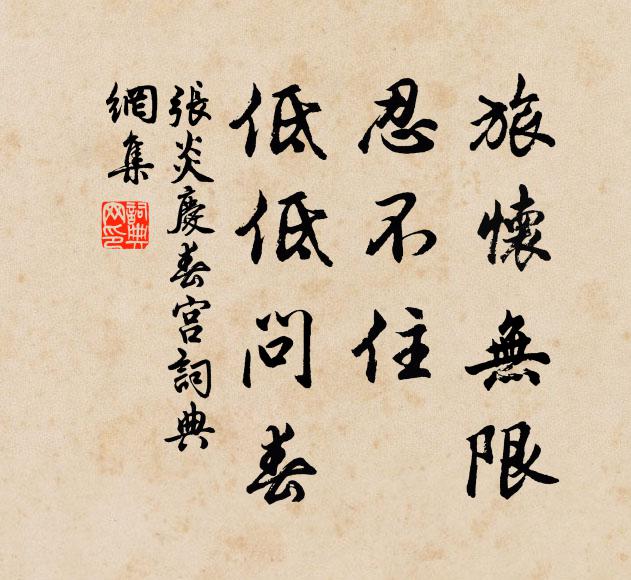 旅懷無限
忍不住
低低問春
張炎慶春宮詞典
網集
詞典
網印